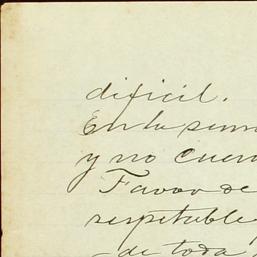 dificil.
En la sem
y no cuen
Favor de
respetable
- de toda